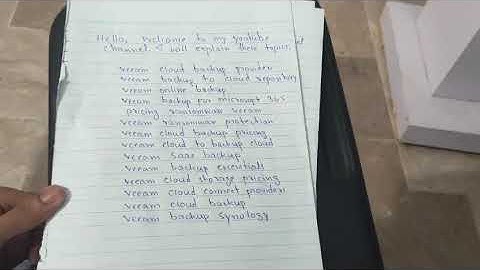 Hello, welcome to my youtube
channel. I will explain these topics.
veeam cloud backup provider
veeam backup to cloud repository
veeam online backup
veeam backup for microsoft 365
pricing ransomware veeam
veeam ransomware protection
veeam cloud backup pricing
veeam cloud to backup cloud
veeam saas backup
veeam backup essentials
veeam cloud storage pricing
veeam cloud connect providers
veeam cloud backup
veeam backup synology